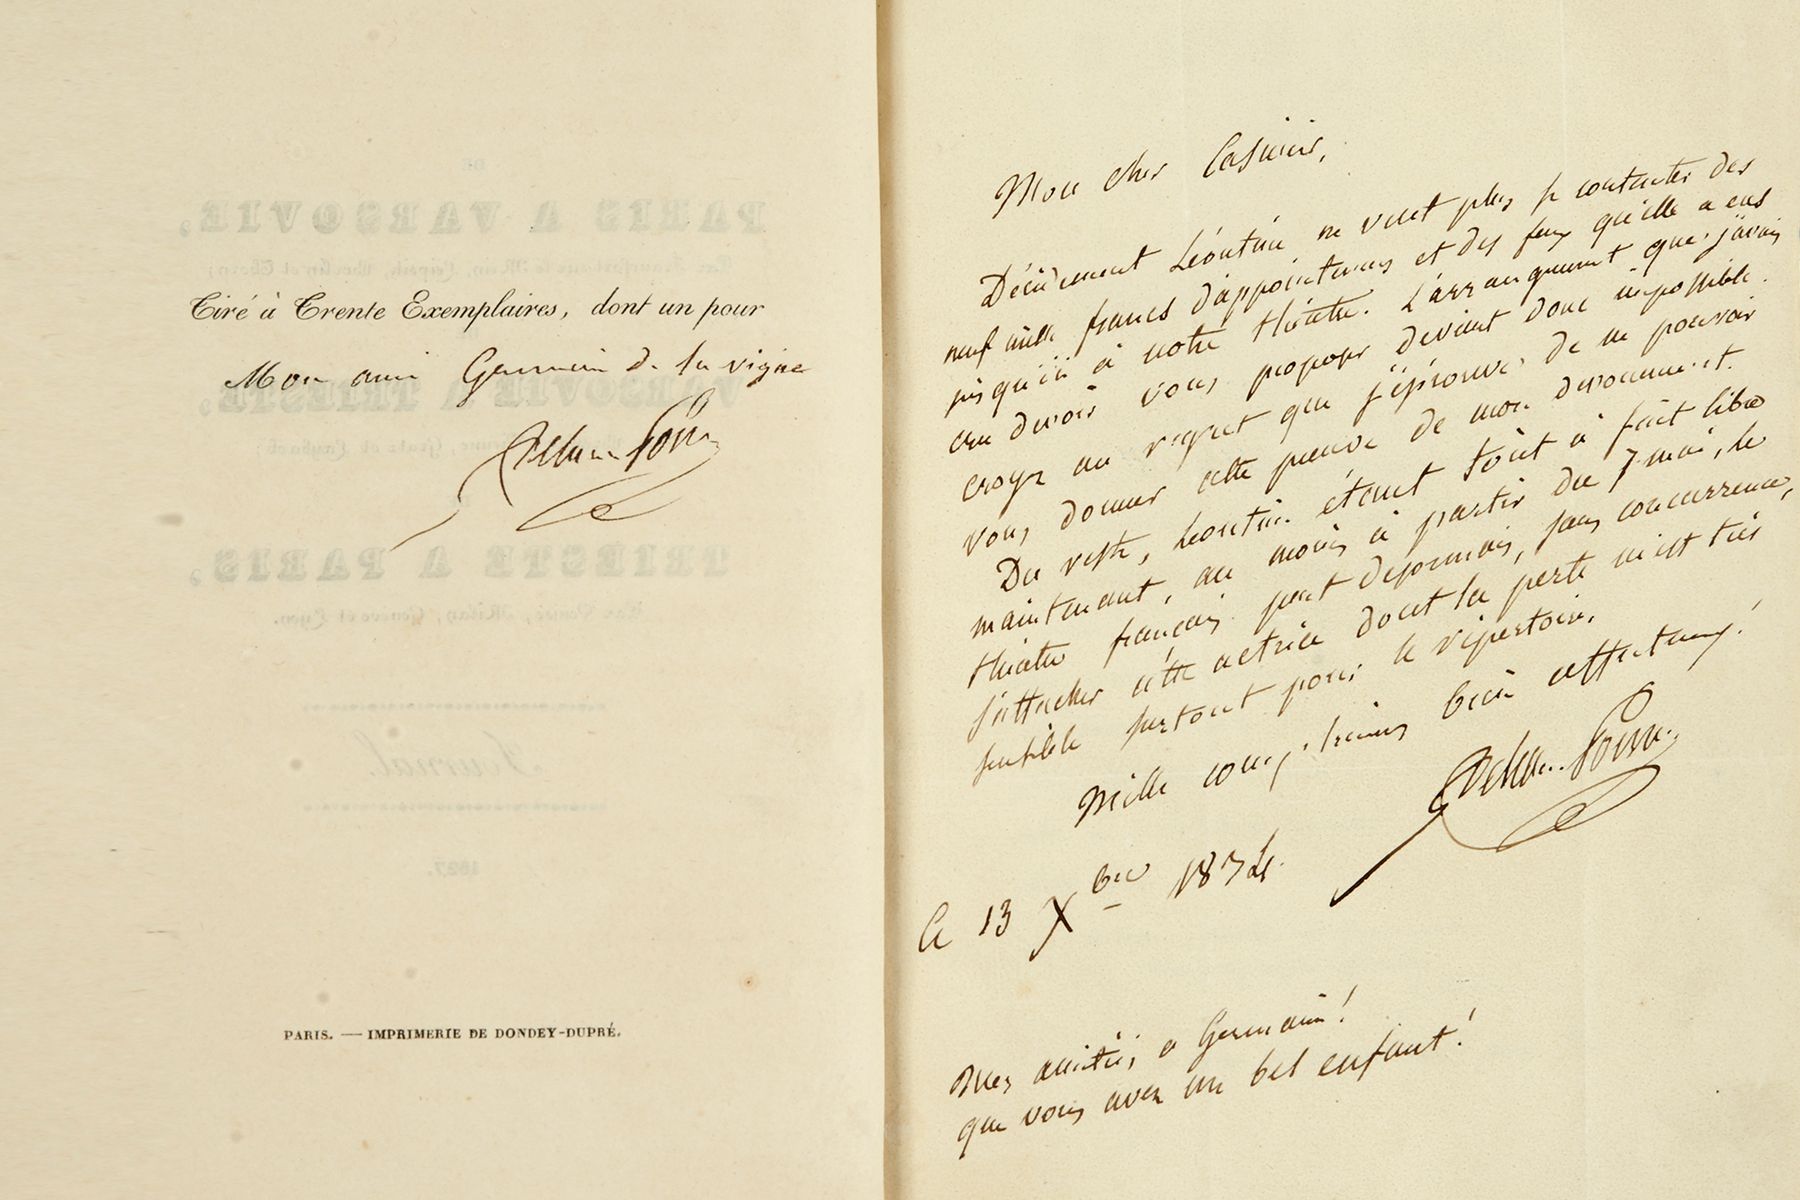 Tiré à Trente Exemplaires, dont un pour
Mon ami Germain de la vigne
PARIS. — IMPRIMERIE DE DONDEY-DUPRÉ.
Mon cher Casimir,
Décidément Léontine ne veut plus se contenter des
neuf mille francs d'appointemens et des feux qu'elle a eus
jusqu'ici à notre théâtre. L'arrangement que j'avais
cru devoir vous proposer devient donc impossible.
croyez au regret que j'éprouve de ne pouvoir
vous donner cette preuve de mon dévouement.
Du reste, Léontine étant tout à fait libre
maintenant, au moins à partir du 7 mai, le
théâtre français peut désormais, sans concurrence,
s'attacher cette actrice dont la perte m'est très
sensible surtout pour le répertoire.
Mille complimens bien affectueux!
Ce 13 Xbre 1834.
Mes amitiés à Germain!
que vous avez un bel enfant!